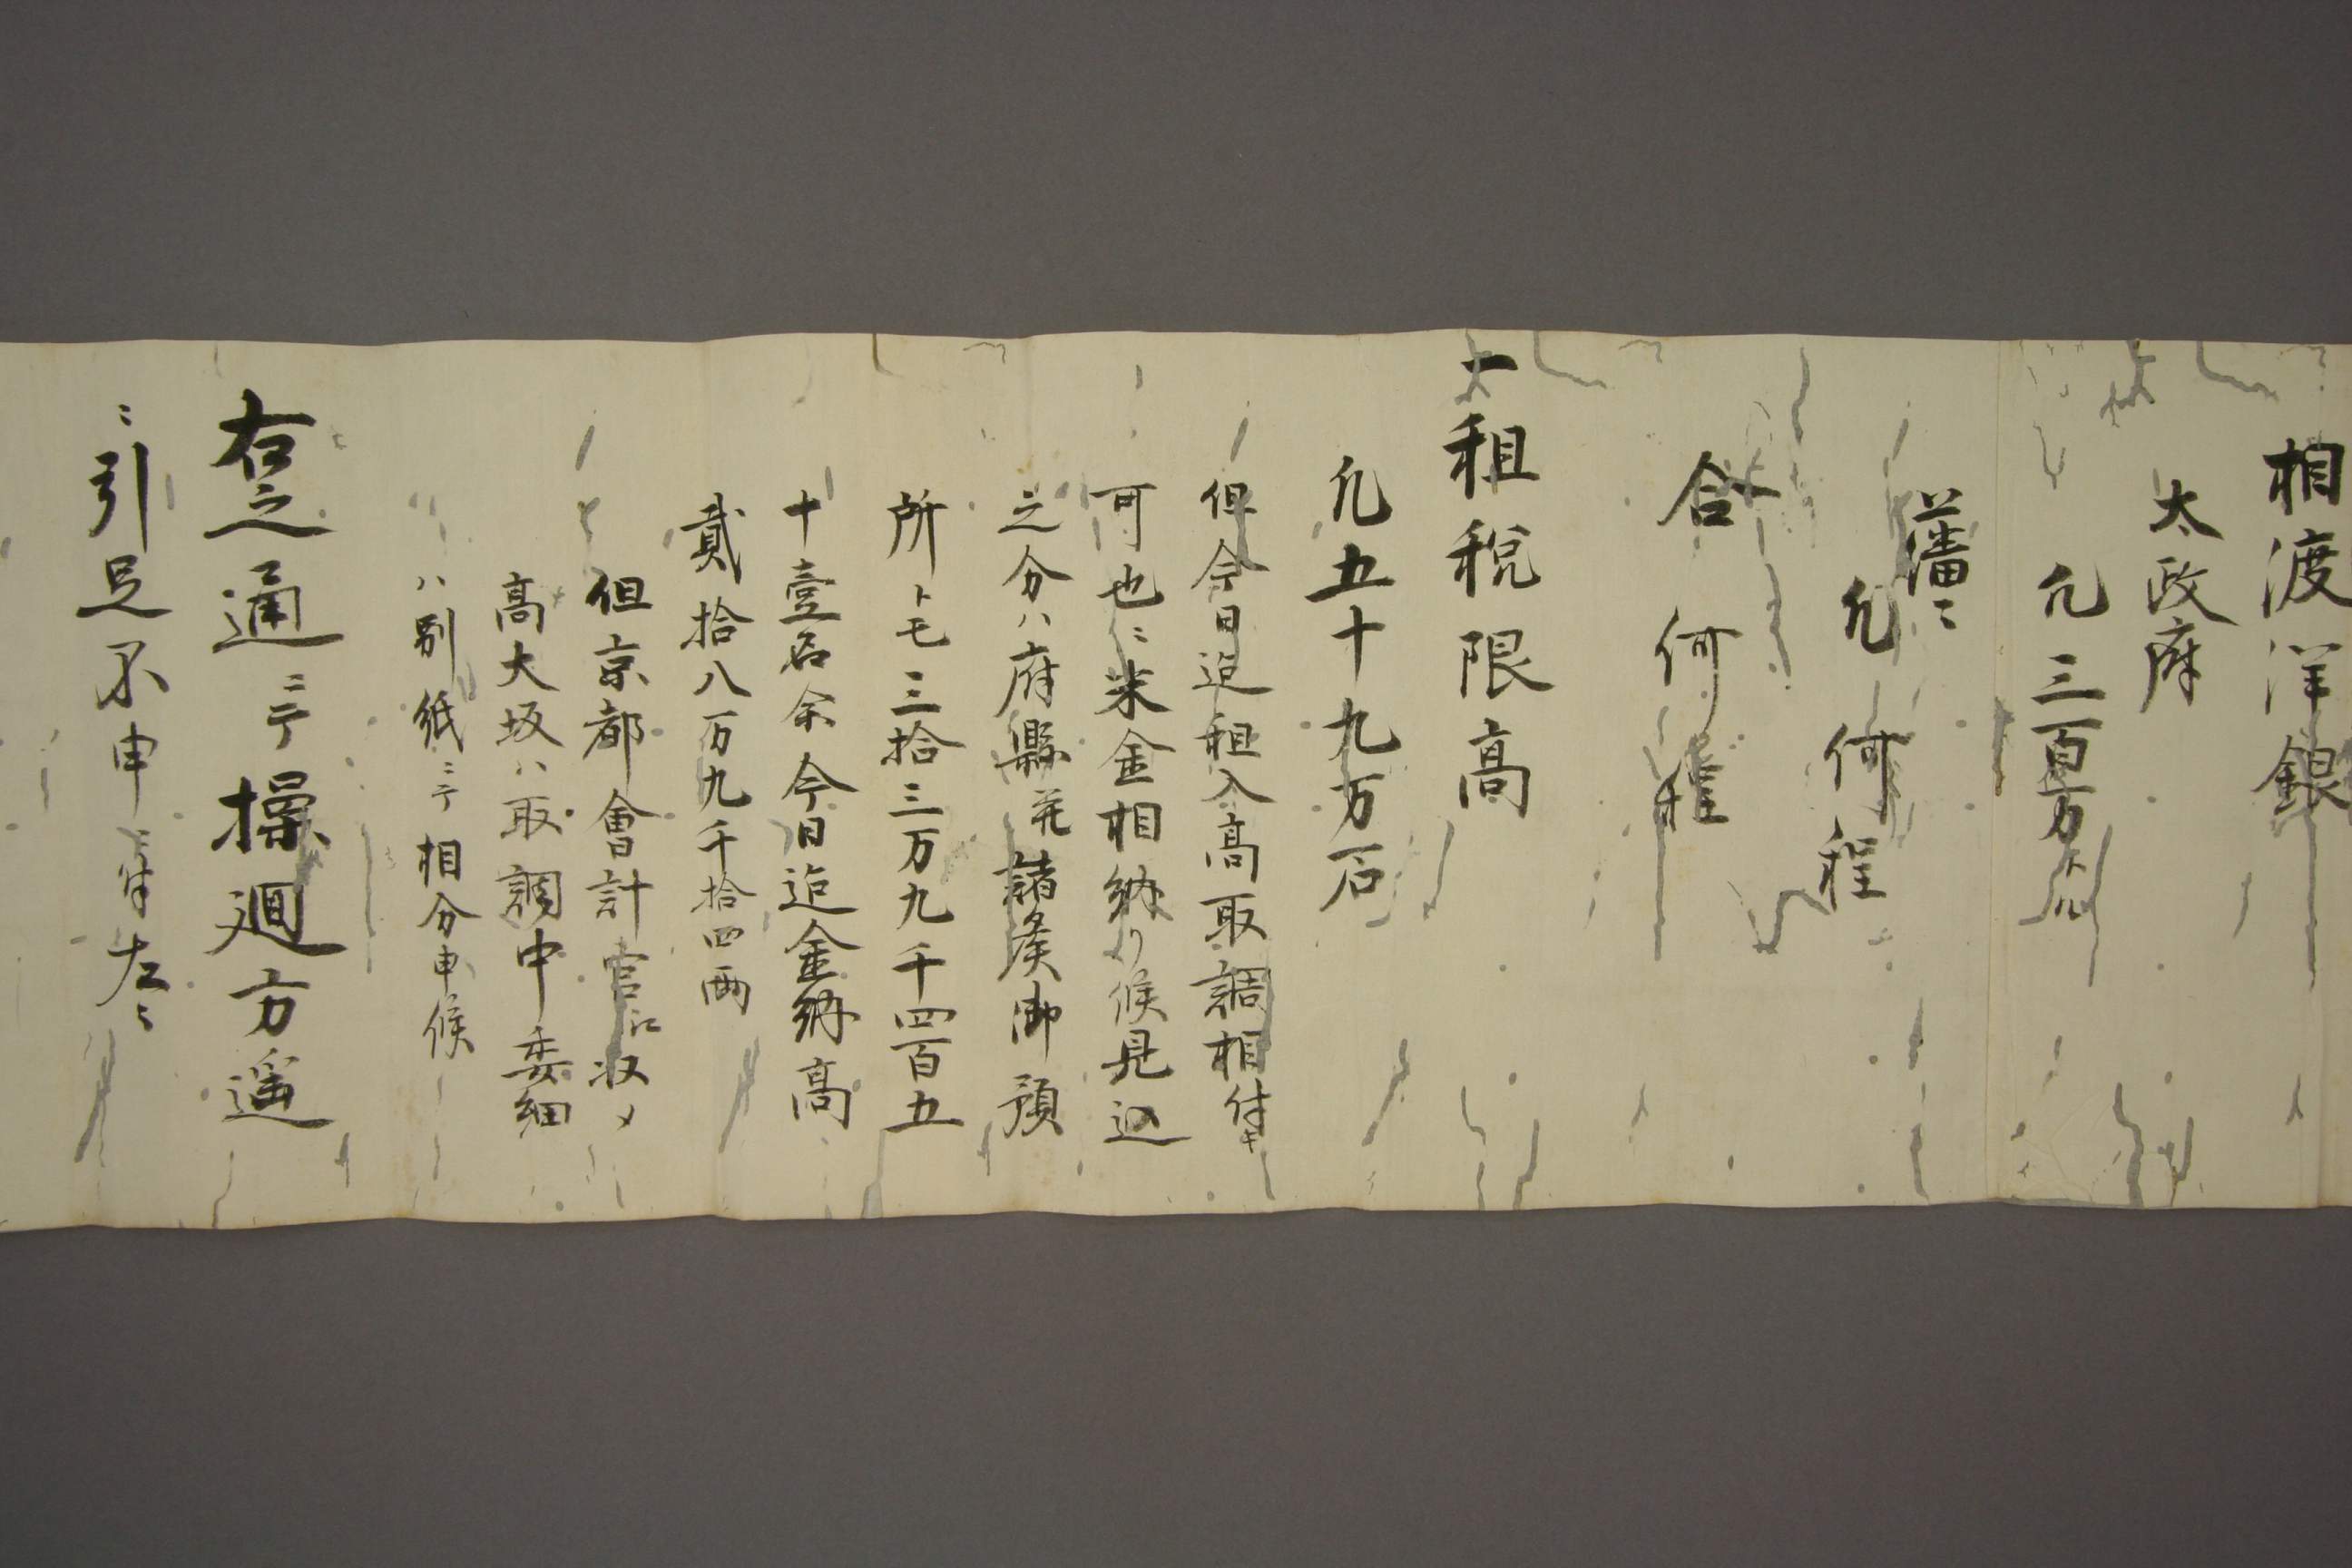 相渡洋銀
太政府
凡三百万ドル
藩ニ
凡何程
合何程
一租税限高
凡五十九万石
但今日迠租入高取調相付
可也ニ米金相納り候見込
之分ハ府縣并諸侯御預
所トモ三拾三万九千四百五
十壹石余今日迠金納高
貳拾八万九千拾四両
但京都會計官江収メ
高大坂ハ取調中委細
ハ別紙ニテ相分申候
右之通ニテ操廻方遥
ニ引足不申ニ付左ニ